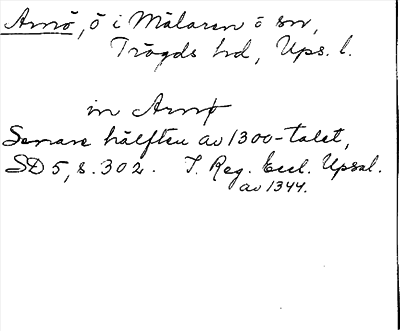 Arnö, ö i Mälaren o sn,
Trögds hd, Ups. l.
in Arnø
Senare hälften av 1300-talet,
SD 5, s. 302. I. Reg. Eccl. Upsal.
av 1344.